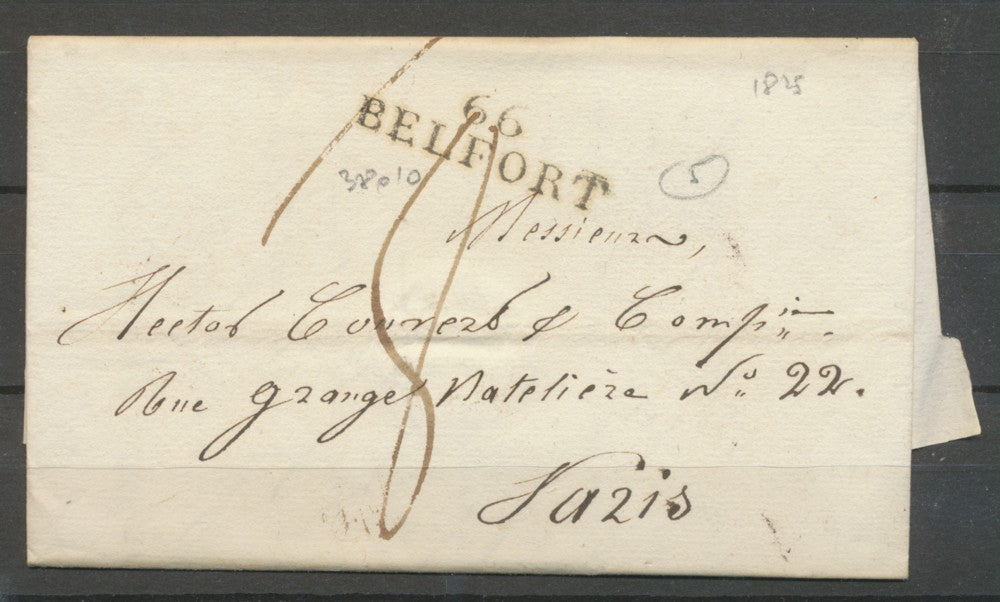 1825
66
BELFORT
5
8
Messieurs,
Hector & Compie
Rue grange Batelière No 22.
Paris